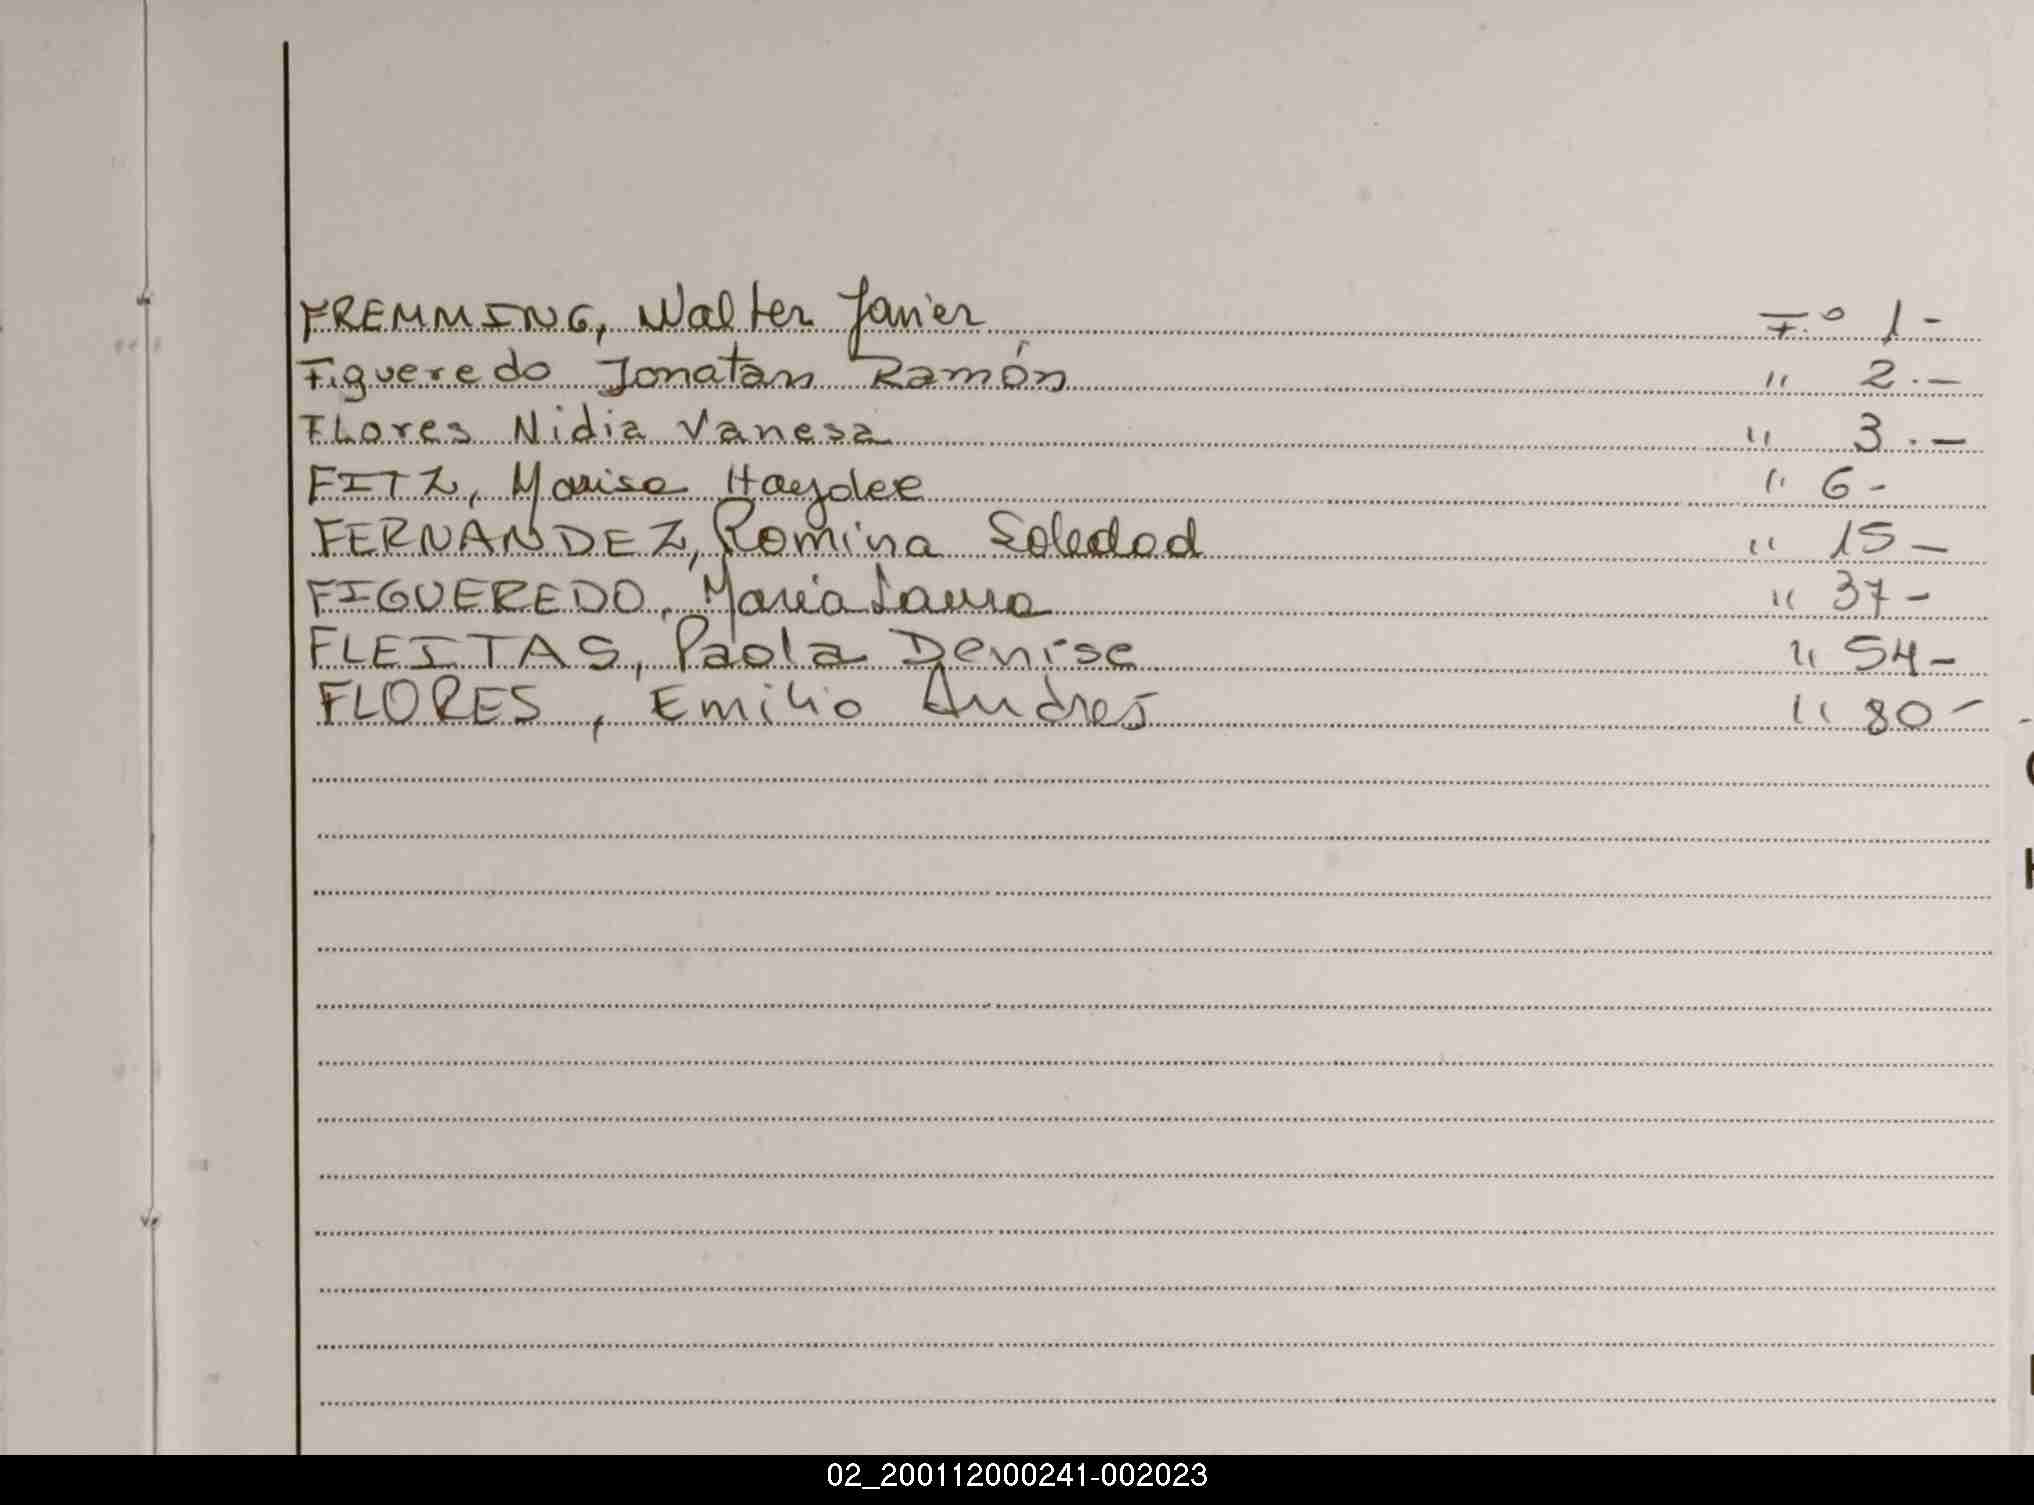 FREMMING, Walter Javier F.º 1-
Figueredo Jonatan Ramón " 2.-
Flores Nidia Vanesa " 3.-
FITZ, Marisa Haydee " 6-
FERNANDEZ, Romina Soledad " 15-
FIGUEREDO, Maria Laura " 37-
FLEITAS, Paola Denise " 54-
FLORES, Emilio Andres " 80-
02_200112000241-002023